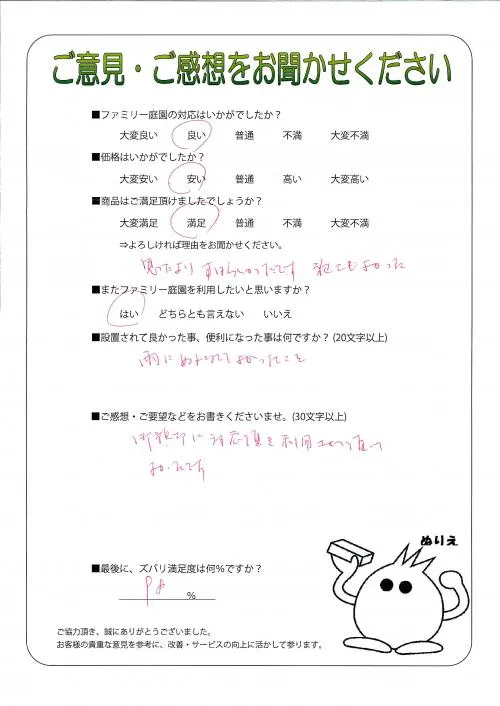 ご意見・ご感想をお聞かせください
■ファミリー庭園の対応はいかがでしたか？
大変良い 良い 普通 不満 大変不満
■価格はいかがでしたか？
大変安い 安い 普通 高い 大変高い
■商品はご満足頂けましたでしょうか？
大変満足 満足 普通 不満 大変不満
⇒よろしければ理由をお聞かせください。
思ったより すばらしかったです
■またファミリー庭園を利用したいと思いますか？
はい どちらとも言えない いいえ
■設置されて良かった事、便利になった事は何ですか？(20文字以上)
雨にぬれなくてよかったこと
■ご感想・ご要望などをお書きくださいませ。(30文字以上)
に対応 利用
よかったです
ぬりえ
■最後に、ズバリ満足度は何％ですか？
％
ご協力頂き、誠にありがとうございました。
お客様の貴重な意見を参考に、改善・サービスの向上に活かして参ります。